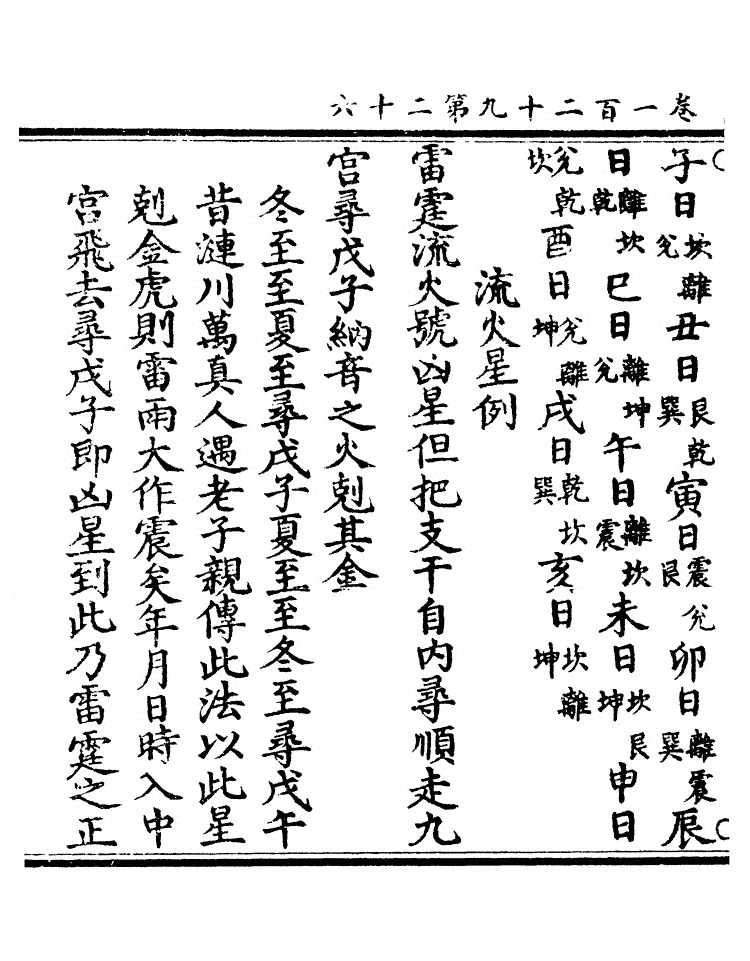 卷一百二十九第二十六
子日坎離兌丑日艮乾巽寅日震兌艮卯日離震巽辰
日離坎乾巳日離坤兌午日離坎震未日坎艮坤申日
兌乾坎酉日兌離坤戌日乾坎巽亥日坎離坤
流火星例
雷霆流火號凶星但把支干自内尋順走九
宮尋戊子納音之火剋其金
冬至至夏至尋戊子夏至至冬至尋戊午
昔漣川萬真人遇老子親傳此法以此星
剋金虎則雷雨大作震矣年月日時入中
宮飛去尋戊子即凶星到此乃雷霆之正